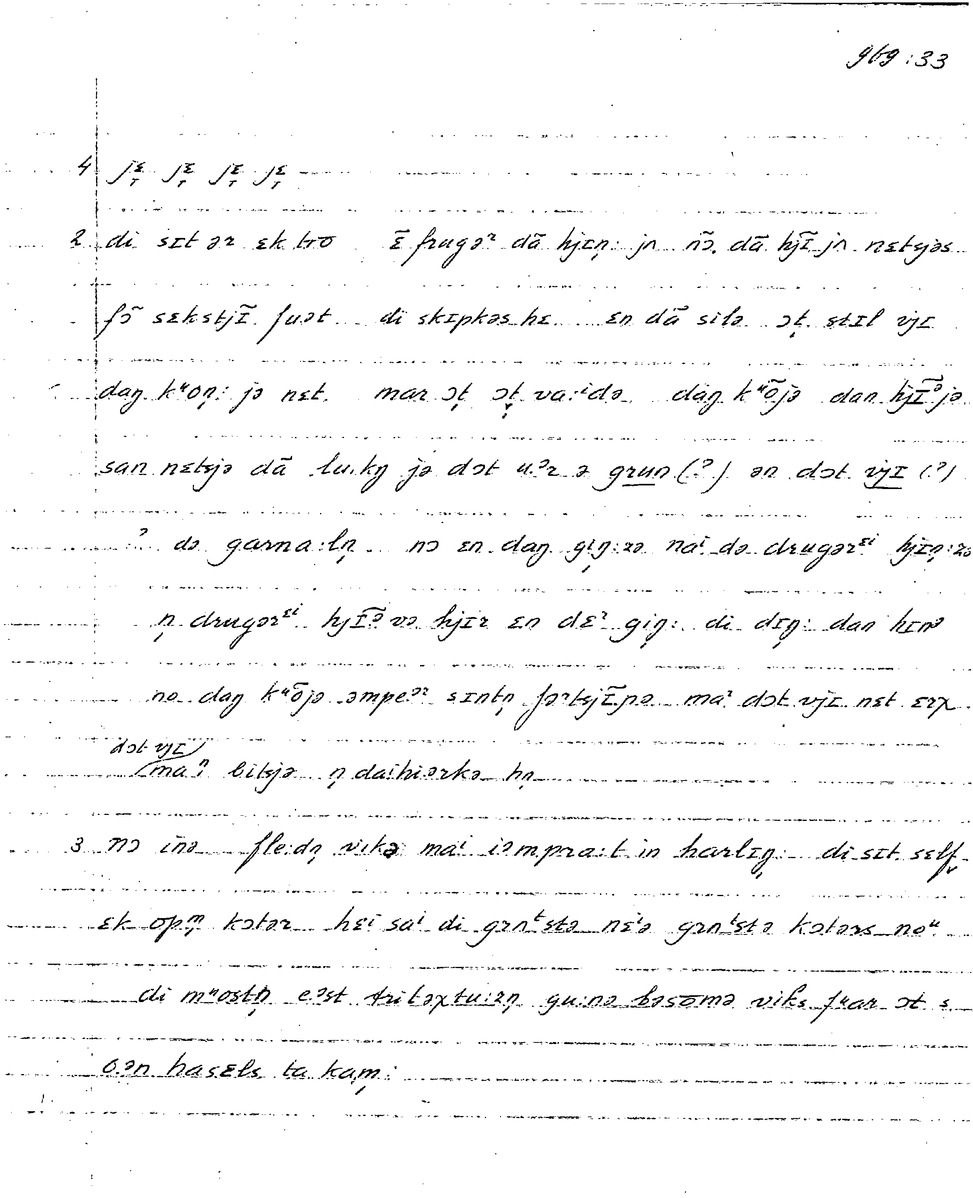 969:33
4 jɛ̞ jɛ̞ jɛ̞ jɛ̞
2 di sɪt ər ɛk tro ɛ̃ frugəʳ dã hjɪn̩: jn nɔ̃. dã hjɪ̃ jn nɛtsjəs
fɔ̃ sɛkstjɪ̃ fuət di skɪpkəs hɪ ɛn dã silə ɔt̩ stɪl vjɪ
daŋ kᵘon̩: jə nɛt. mar ɔt̩ ɔt̩ va:ⁱdə daŋ kᵘõjə dan hjɪ̃ᵊjə
san nɛtsjə dã lu.kŋ jə dɔt u.ᵊr ə grun (?) ən dɔt vjɪ (?)
? də garna:ln̩ nɔ ɛn daŋ gin̩:zə naⁱ də drugərᵋⁱ hjɪn̩:zə
n̩ drugərᵋⁱ hjɪ̃ᵊ və hjɪr ɛn dɛʳ gin̩: di dɪn̩: dan hɪnə
no daŋ kᵘõjə əmpeᵊʳ sɪntn̩ fəʳtsjɪ̃nə maʳ dɔt vjɪ nɛt ɛrχ
dɔt vjɪ
maⁿ bitsjə n̩ daihiərkə hn̩
3 nɔ inə fle:dn̩ vikə maⁱ iəmpra:t in harlɪn̩: di sɪt sɛlf
ɛk opᵐ̩ kɔtər hɛⁱ saⁱ di grnᵗstə nɛⁱə grnᵗstə kɔtərs noᵘ
di mᵘostn̩ eᵊst tritəχtu:zn̩ gu:nə bəsomə viks fᵘar ɔt s
o.ən hasɛls ta kam̩: